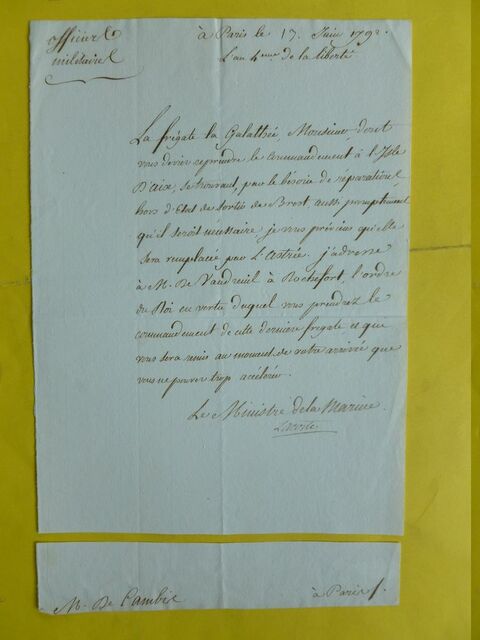 officiers
militaires
à Paris le 17. Juin 1792.
L'an 4eme de la liberté
La frégate la Galathée Monsieur dont
vous deviez reprendre le commandement à l'Isle
D'aix, se trouvant, par le besoin de réparations
hors d'Etat de sortir de Brest aussi promptement
qu'il seroit necessaire je vous préviens qu'elle
sera remplacée par L'Astrée. j'adresse
à M. de Vaudreuil à Rochefort, l'ordre
du Roi en vertu duquel vous prendrez le
commandement de cette derniere frégate et qui
vous sera remis au moment de votre arrivée que
vous ne pouvez trop accélérer.
Le Ministre de la Marine
Lacoste
M. De Cambis
à Paris